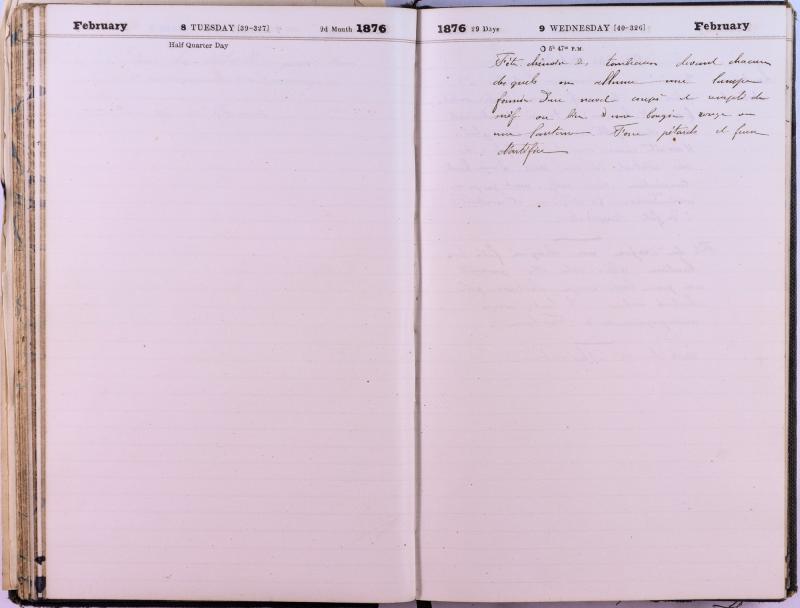 February
8 TUESDAY [39-327]
2d Month 1876
Half Quarter Day
1876 29 Days
9 WEDNESDAY [40-326]
February
5h 47m P.M.
Fête chinoise des tombeaux devant chacun
des quels on allume une lampe
formée d'un navet coupé et rempli de
suif ou bien d'une bougie rouge ou
une lanterne Force pétards et feux
d'artifice